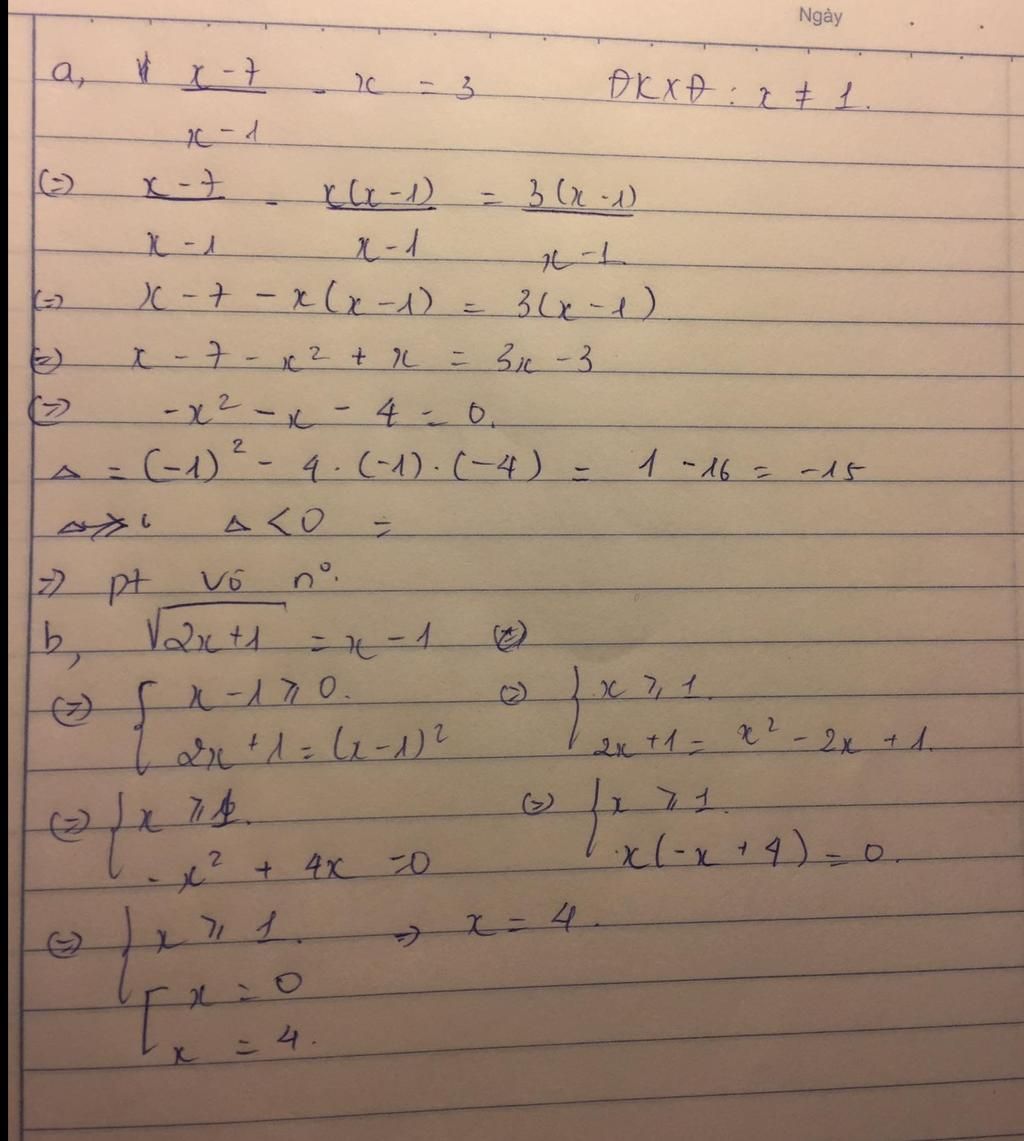 Ngày
a, x - 7 / x - 1 - x = 3 ĐKXĐ : x ≠ 1.
(=) x - 7 / x - 1 - x(x - 1) / x - 1 = 3(x - 1) / x - 1
(=) x - 7 - x(x - 1) = 3(x - 1)
(=) x - 7 - x² + x = 3x - 3
(=) -x² - x - 4 = 0.
Δ = (-1)² - 4 . (-1) . (-4) = 1 - 16 = -15
Δ < 0 =
=> pt vô n°.
b, √2x+1 = x - 1
(=) { x - 1 ≥ 0. (=) { x ≥ 1.
2x + 1 = (x - 1)² 2x + 1 = x² - 2x + 1.
(=) { x ≥ 1. (=) { x ≥ 1.
- x² + 4x = 0 x(-x + 4) = 0.
(=) { x ≥ 1. => x = 4.
[ x = 0
x = 4.